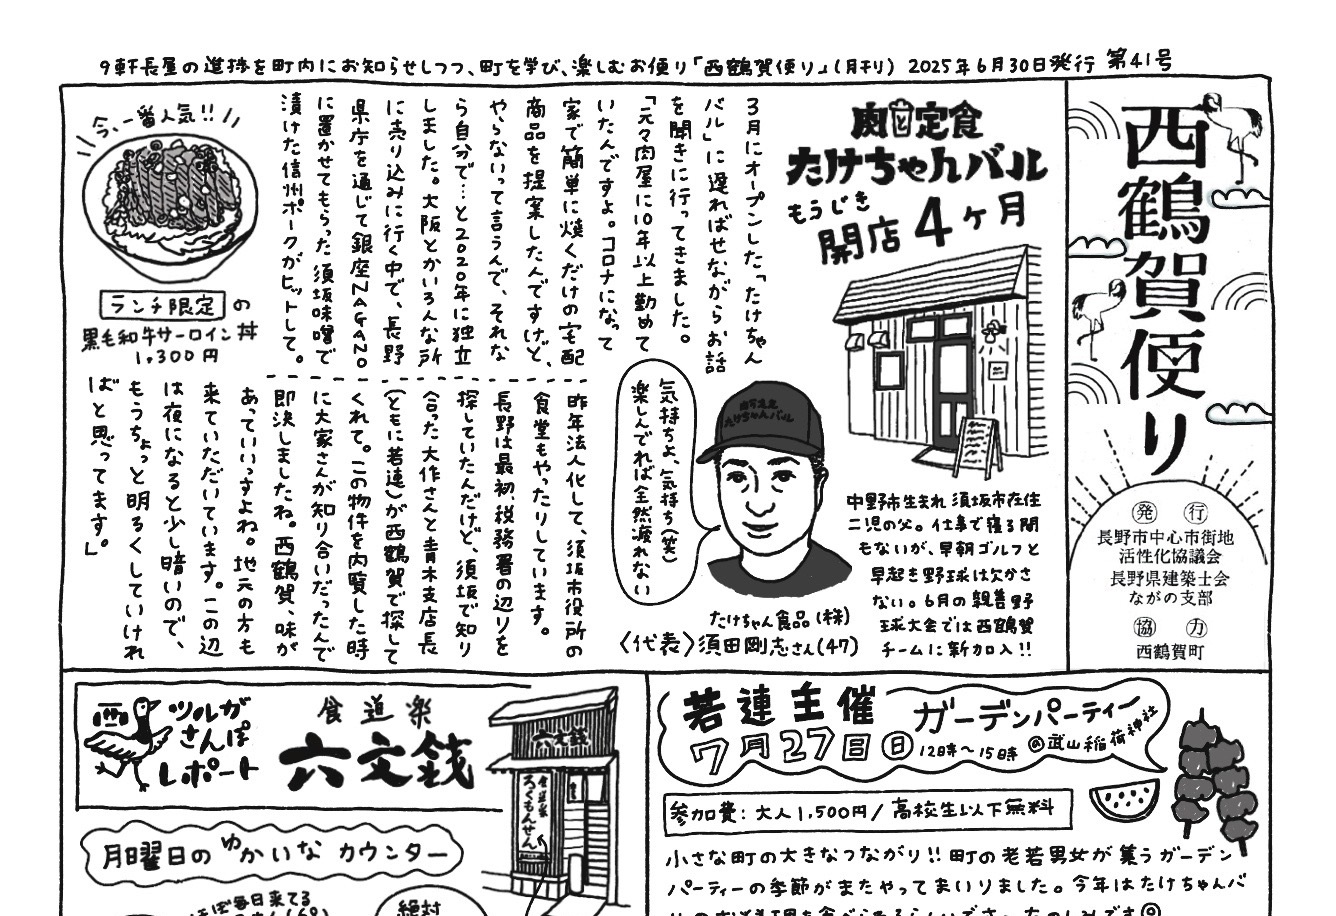 9軒長屋の進捗を町内にお知らせしつつ、町を学び、楽しむお便り「西鶴賀便り」(月刊) 2025年6月30日発行 第41号
西鶴賀便り
発行
長野市中心市街地
活性化協議会
長野県建築士会
ながの支部
協力
西鶴賀町
肉と定食
たけちゃんバル
もうじき
開店4ヶ月
3月にオープンした「たけちゃん
バル」に遅ればせながらお話
を聞きに行ってきました。
「元々肉屋に10年以上勤めて
いたんですよ。コロナになって
家で簡単に焼くだけの宅配
商品を提案したんですけど、
やらないって言うんで、それな
ら自分で…と2020年に独立
しました。大阪とかいろんな所
に売り込みに行く中で、長野
県庁を通じて銀座NAGANO
に置かせてもらった須坂味噌で
漬けた信州ポークがヒットして。
昨年法人化して、須坂市役所の
食堂もやったりしています。
長野は最初、税務署の辺りを
探していたんだけど、須坂で知り
合った大作さんと青木支店長
(ともに若連)が西鶴賀で探して
くれて。この物件を内覧した時
に大家さんが知り合いだったんで
即決しましたね。西鶴賀、味が
あっていいっすよね。地元の方も
来ていただいています。この辺
は夜になると少し暗いので、
もうちょっと明るくしていけれ
ばと思ってます。」
今、一番人気!!
ランチ限定の
黒毛和牛サーロイン丼
1,300円
気持ちよ、気持ち(笑)
楽しんでれば全然疲れない
たけちゃんバル
たけちゃん食品(株)
〈代表〉須田剛志さん(47)
中野市生まれ須坂市在住
二児の父。仕事で寝る間
もないが、早朝ゴルフと
早起き野球は欠かさ
ない。6月の親善野
球大会では西鶴賀
チームに新加入!!
ツルガ
さんぽ
レポート
食道楽
六文銭
六文銭
食道楽
ろくもんせん
月曜日のゆかいなカウンター
ほぼ毎日来てる
絶対
若連主催 ガーデンパーティー
7月27日(日) 12時〜15時 @武山稲荷神社
参加費:大人1,500円/高校生以下無料
小さな町の大きなつながり!!町の老若男女が集うガーデン
パーティーの季節がまたやってまいりました。今年はたけちゃんバ